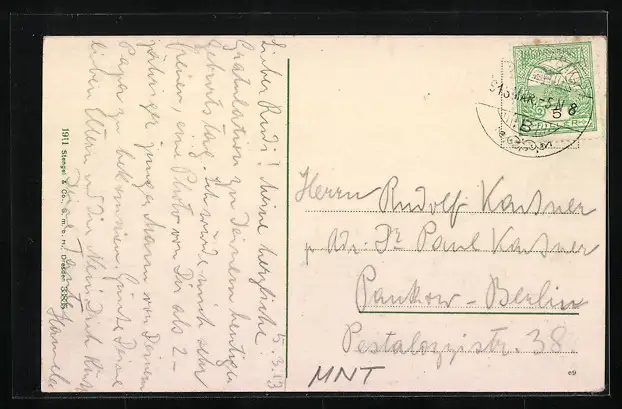 5.3.13
Lieber Rudi! Meine herzlichste
Gratulation zu Deinem heutigen
Geburtstag. Ich würde mich sehr
freuen, eine Photo von Dir als 2-
jähriger junger Mann von Deinem
Papa zu bekommen. Grüsse Deine
lieben Eltern und Dir
1911 Stengel & Co., G.m.b.H., Dresden
MAGYAR KIR. POSTA
5
FILLÉR
913 MÁR. -5. N 8
B
Herrn Rudolf Kastner
p Adr: Dr Paul Kastner
Pankow-Berlin
Pestalozzistr. 38.
MNT
e9